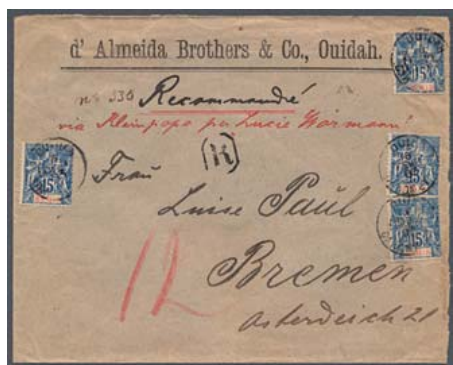 d' Almeida Brothers & Co., Ouidah.
n° 336 Recommandé
via Kleinpopo per Lucie Wörmann
(R)
Frau
Luise Paul
Bremen
Osterdeich 21
12
15
15
15
15